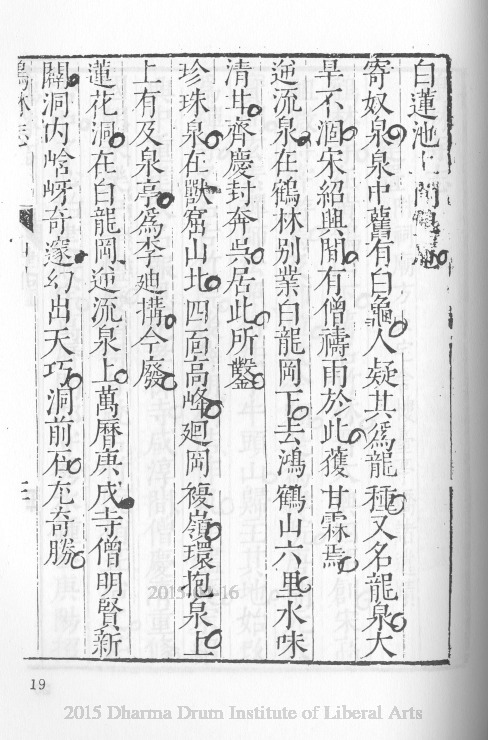 白蓮池
寄奴泉泉中舊有白龜人疑其爲龍種又名龍泉大
旱不涸宋紹興間有僧禱雨於此獲甘霖焉
逆流泉在鶴林别業白龍岡下去鴻鶴山六里水味
清甘齊慶封奔吳居此所鑿
珍珠泉在獸窟山北四面高峰廻岡複嶺環抱泉上
上有及泉亭爲李廸搆今廢
蓮花洞在白龍岡逆流泉上萬曆庚戌寺僧明賢新
闢洞内岭岈奇邃幻出天巧洞前石尤奇勝
鶴林志
19
2015-04-16
2015 Dharma Drum Institute of Liberal Arts